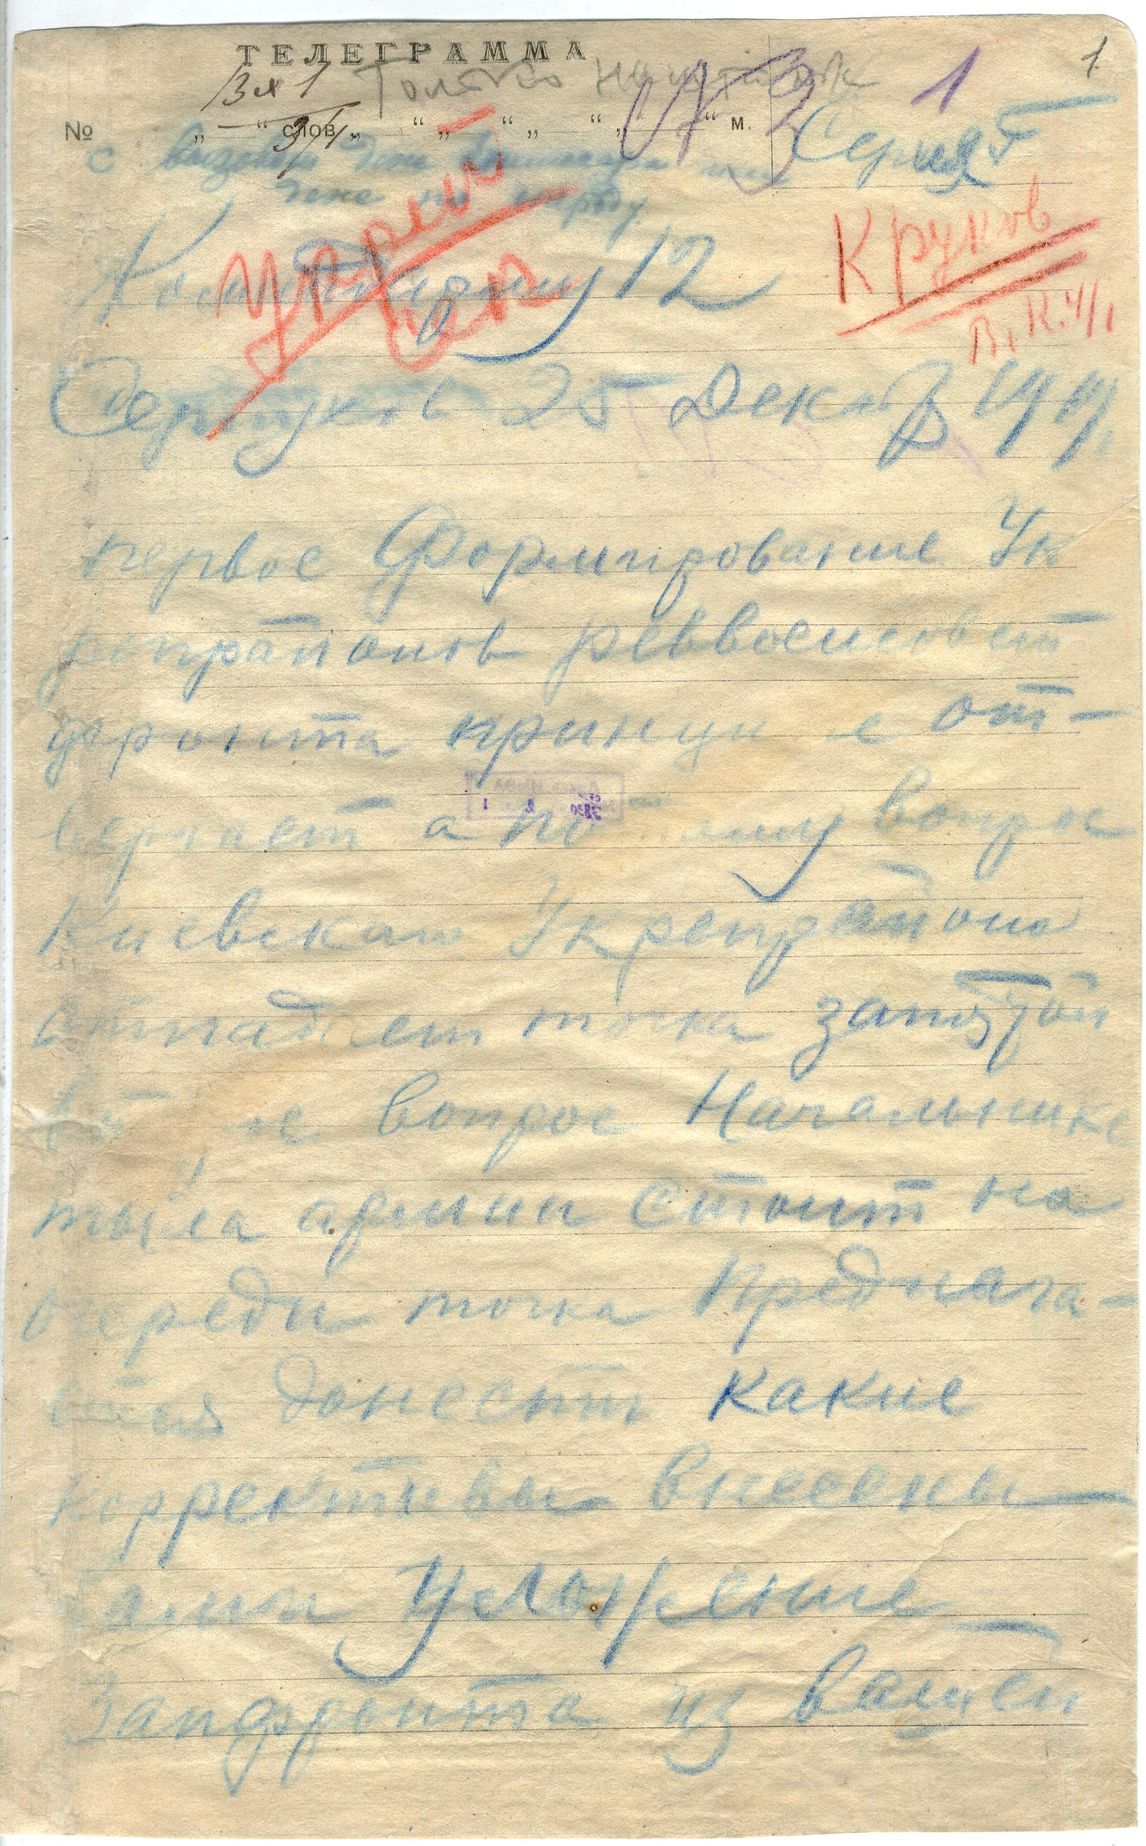 ТЕЛЕГРАММА
1
1.
Вх 1
3/1
№ „ “ слов „ “ „ “ „ “ „ “ м.
Серия Г
Командарму 12
Круков
В. К. 4/1
Серпухов 25 декаб 1919
первое Формирование Ук
репрайонов реввоенсовет
фронта принци е от-
вергает а по му вопрос
Киевскаго Укрепрайона
отпадает точка запятой
вопрос Начальнике
тыла армии стоит на
очереди точка Предлага-
ется донести какие
коррективы внесены
вами Уложение
Запфронта из вашей